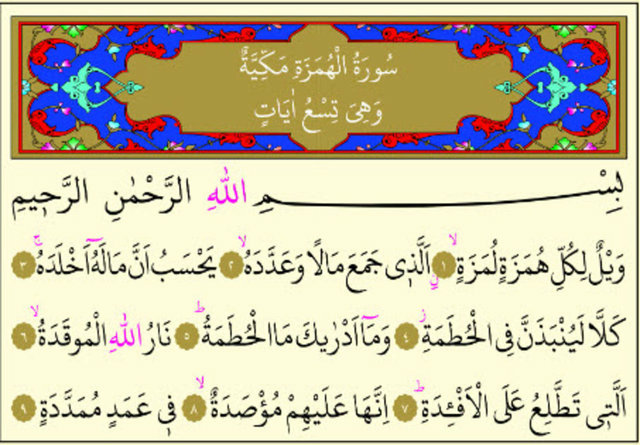 سُورَةُ الْهُمَزَةِ مَكِّيَّةٌ
وَهِىَ تِسْعُ اٰيَاتٍ
بِسْمِ اللّٰهِ الرَّحْمٰنِ الرَّحٖيمِ
وَيْلٌ لِكُلِّ هُمَزَةٍ لُمَزَةٍۙ ﴿١﴾ اَلَّذٖى جَمَعَ مَالًا وَعَدَّدَهُۙ ﴿٢﴾ يَحْسَبُ اَنَّ مَالَهُٓ اَخْلَدَهُۚ ﴿٣﴾
كَلَّا لَيُنْبَذَنَّ فِى الْحُطَمَةِؗ ﴿٤﴾ وَمَٓا اَدْرٰيكَ مَا الْحُطَمَةُؕ ﴿٥﴾ نَارُ اللّٰهِ الْمُوقَدَةُۙ ﴿٦﴾
اَلَّتٖى تَطَّلِعُ عَلَى الْاَفْـِٔدَةِؕ ﴿٧﴾ اِنَّهَا عَلَيْهِمْ مُؤْصَدَةٌۙ ﴿٨﴾ فٖى عَمَدٍ مُمَدَّدَةٍ ﴿٩﴾